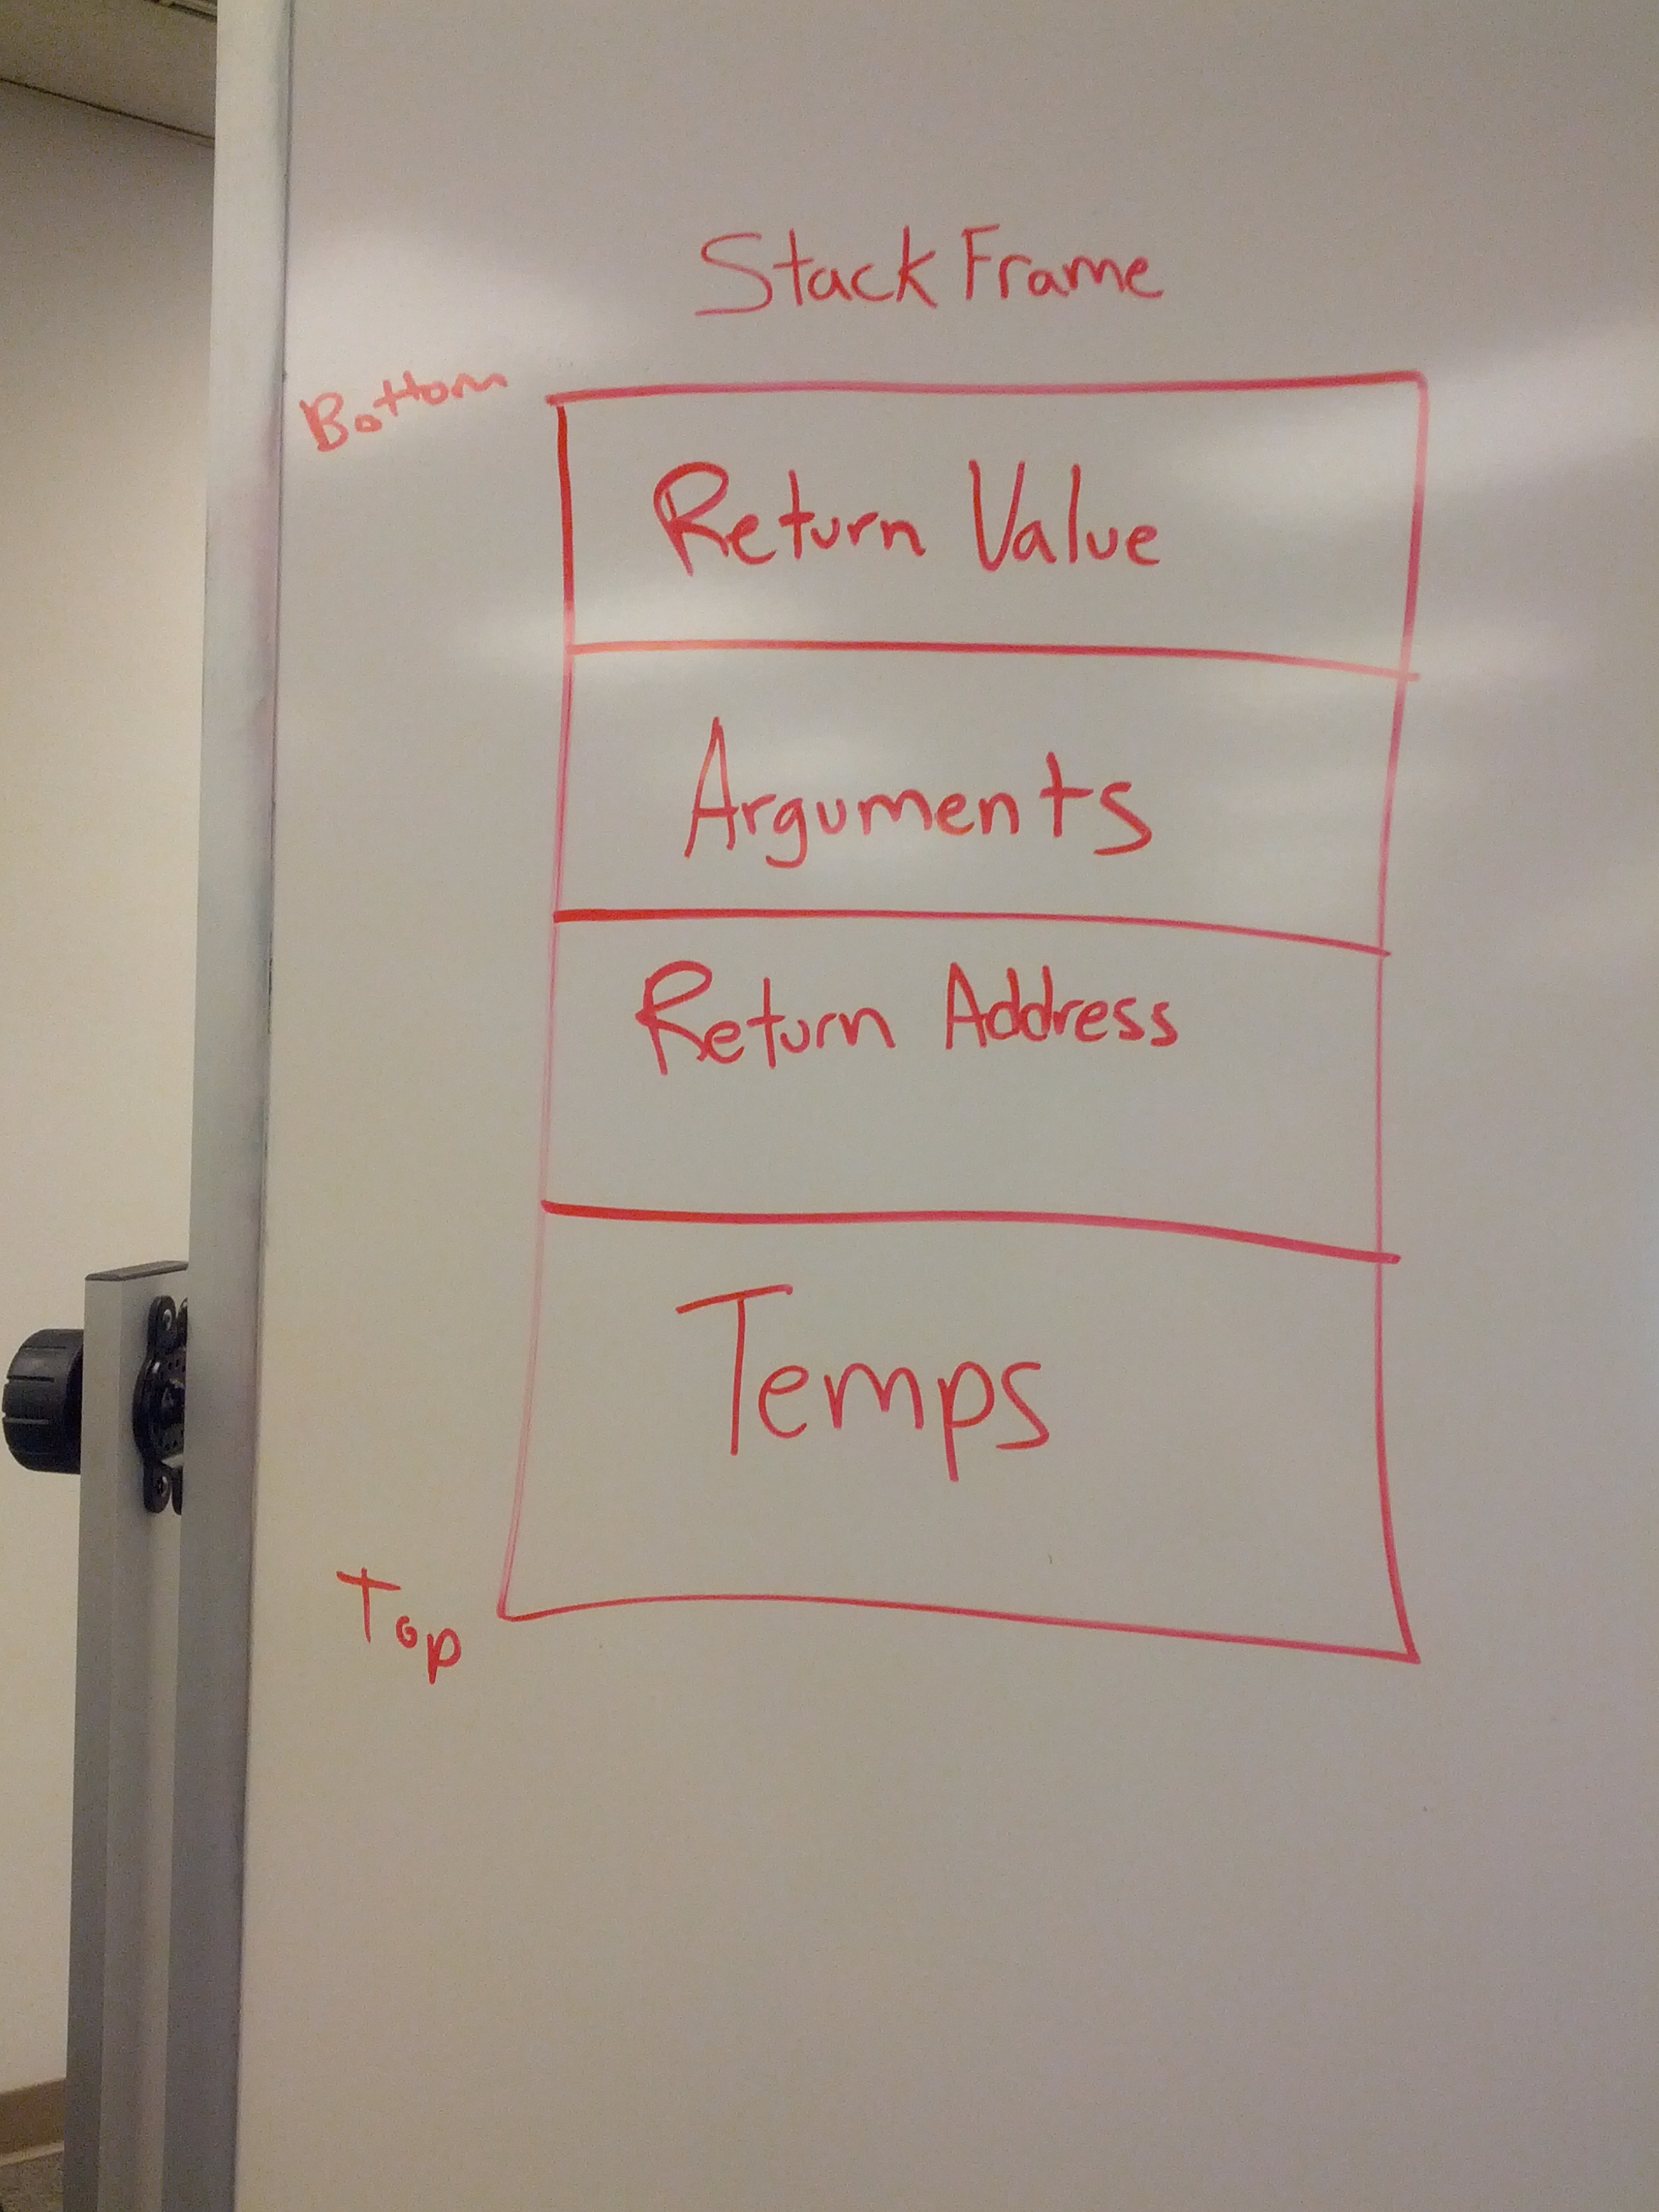 Stack Frame
Bottom
Return Value
Arguments
Return Address
Temps
Top